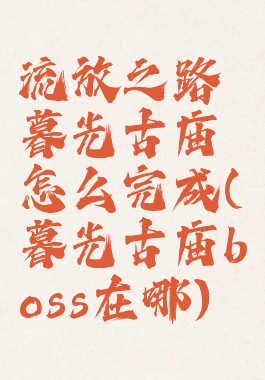 流放之路
暮光古庙
怎么完成(
暮光古庙b
oss在哪)